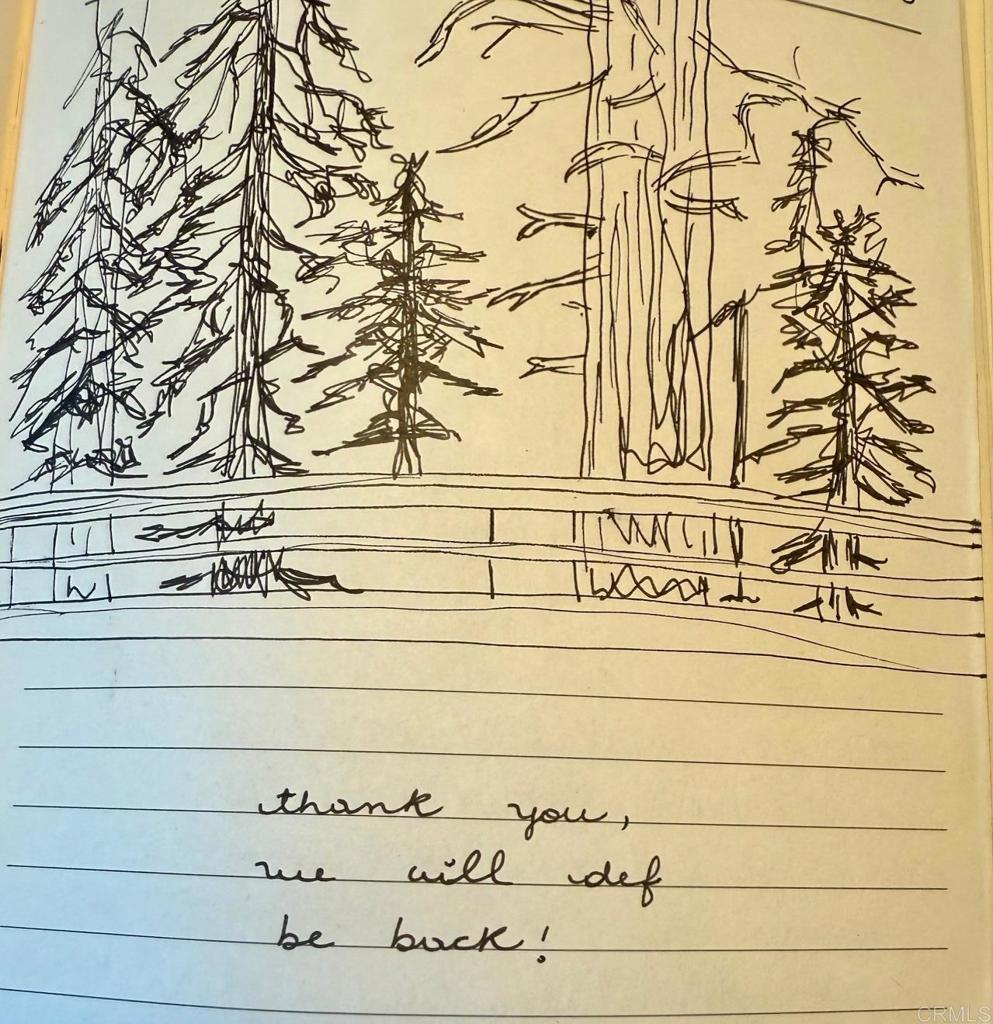 thank you,
we will def
be back!
CRMLS